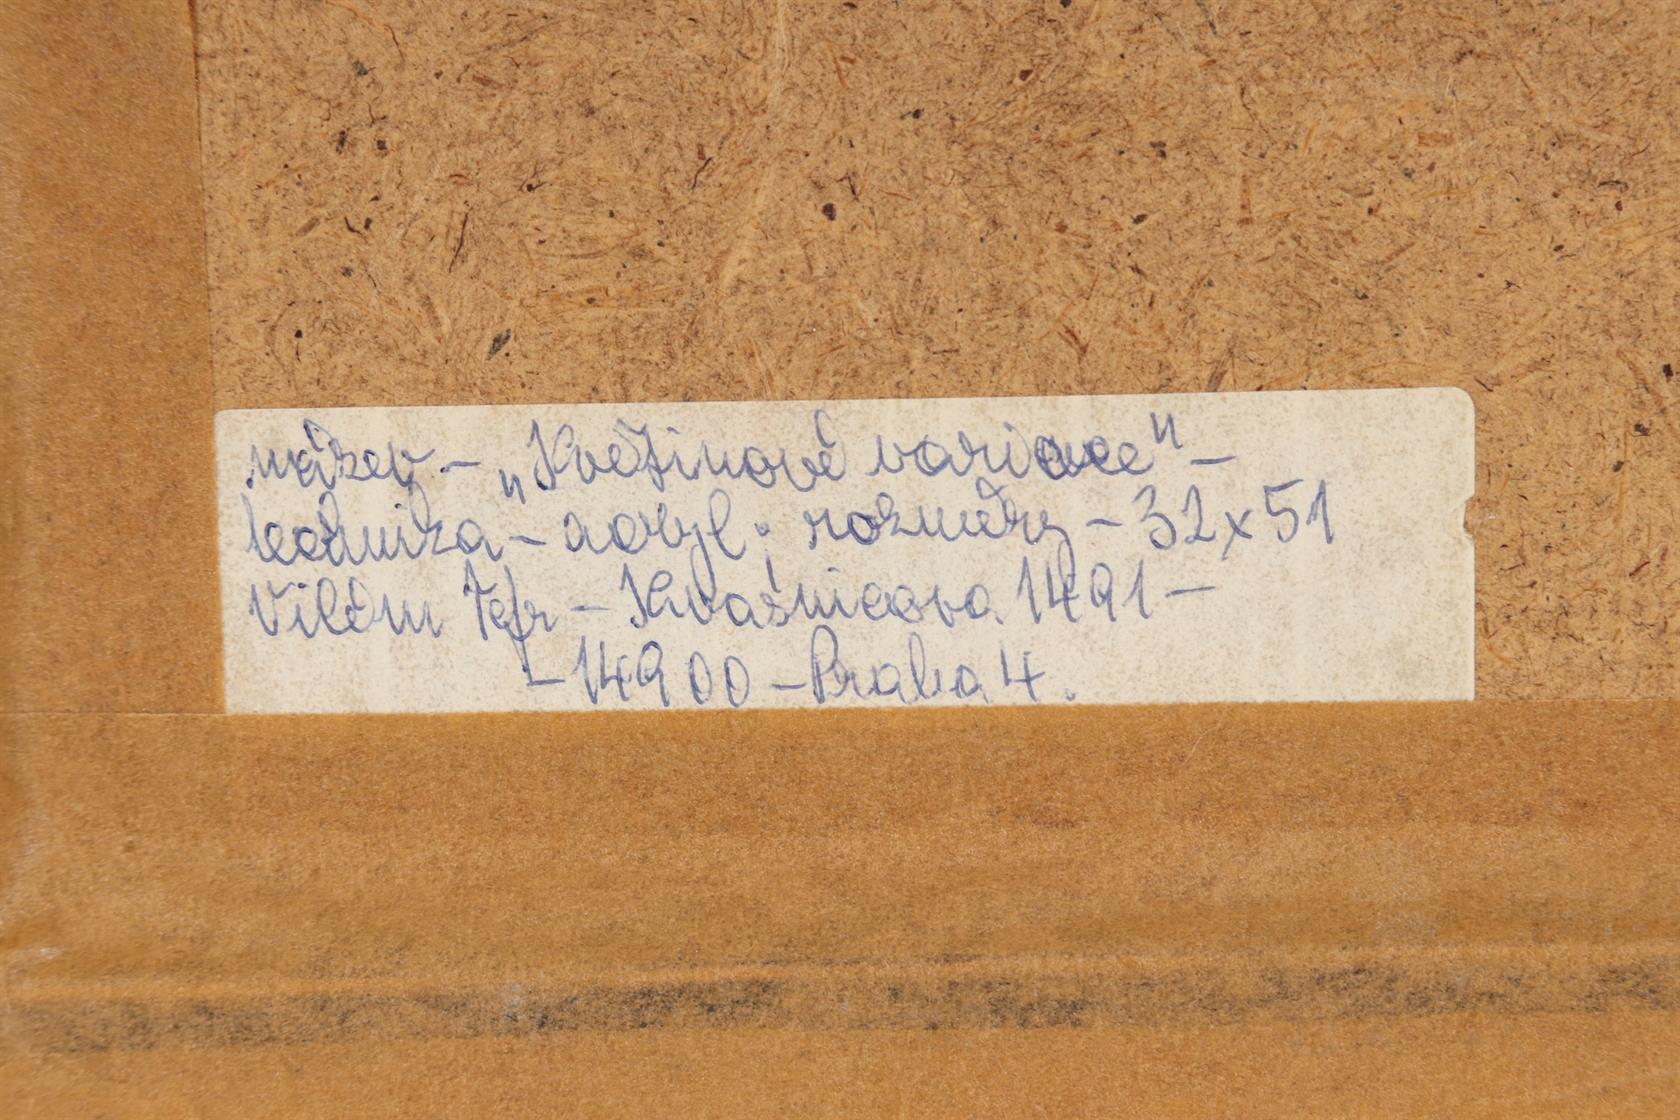 název - „Květinové variace" -
technika - akryl; rozměry - 32x51
Vilém - Kvasnicova 1491 -
- 149 00 - Praha 4.